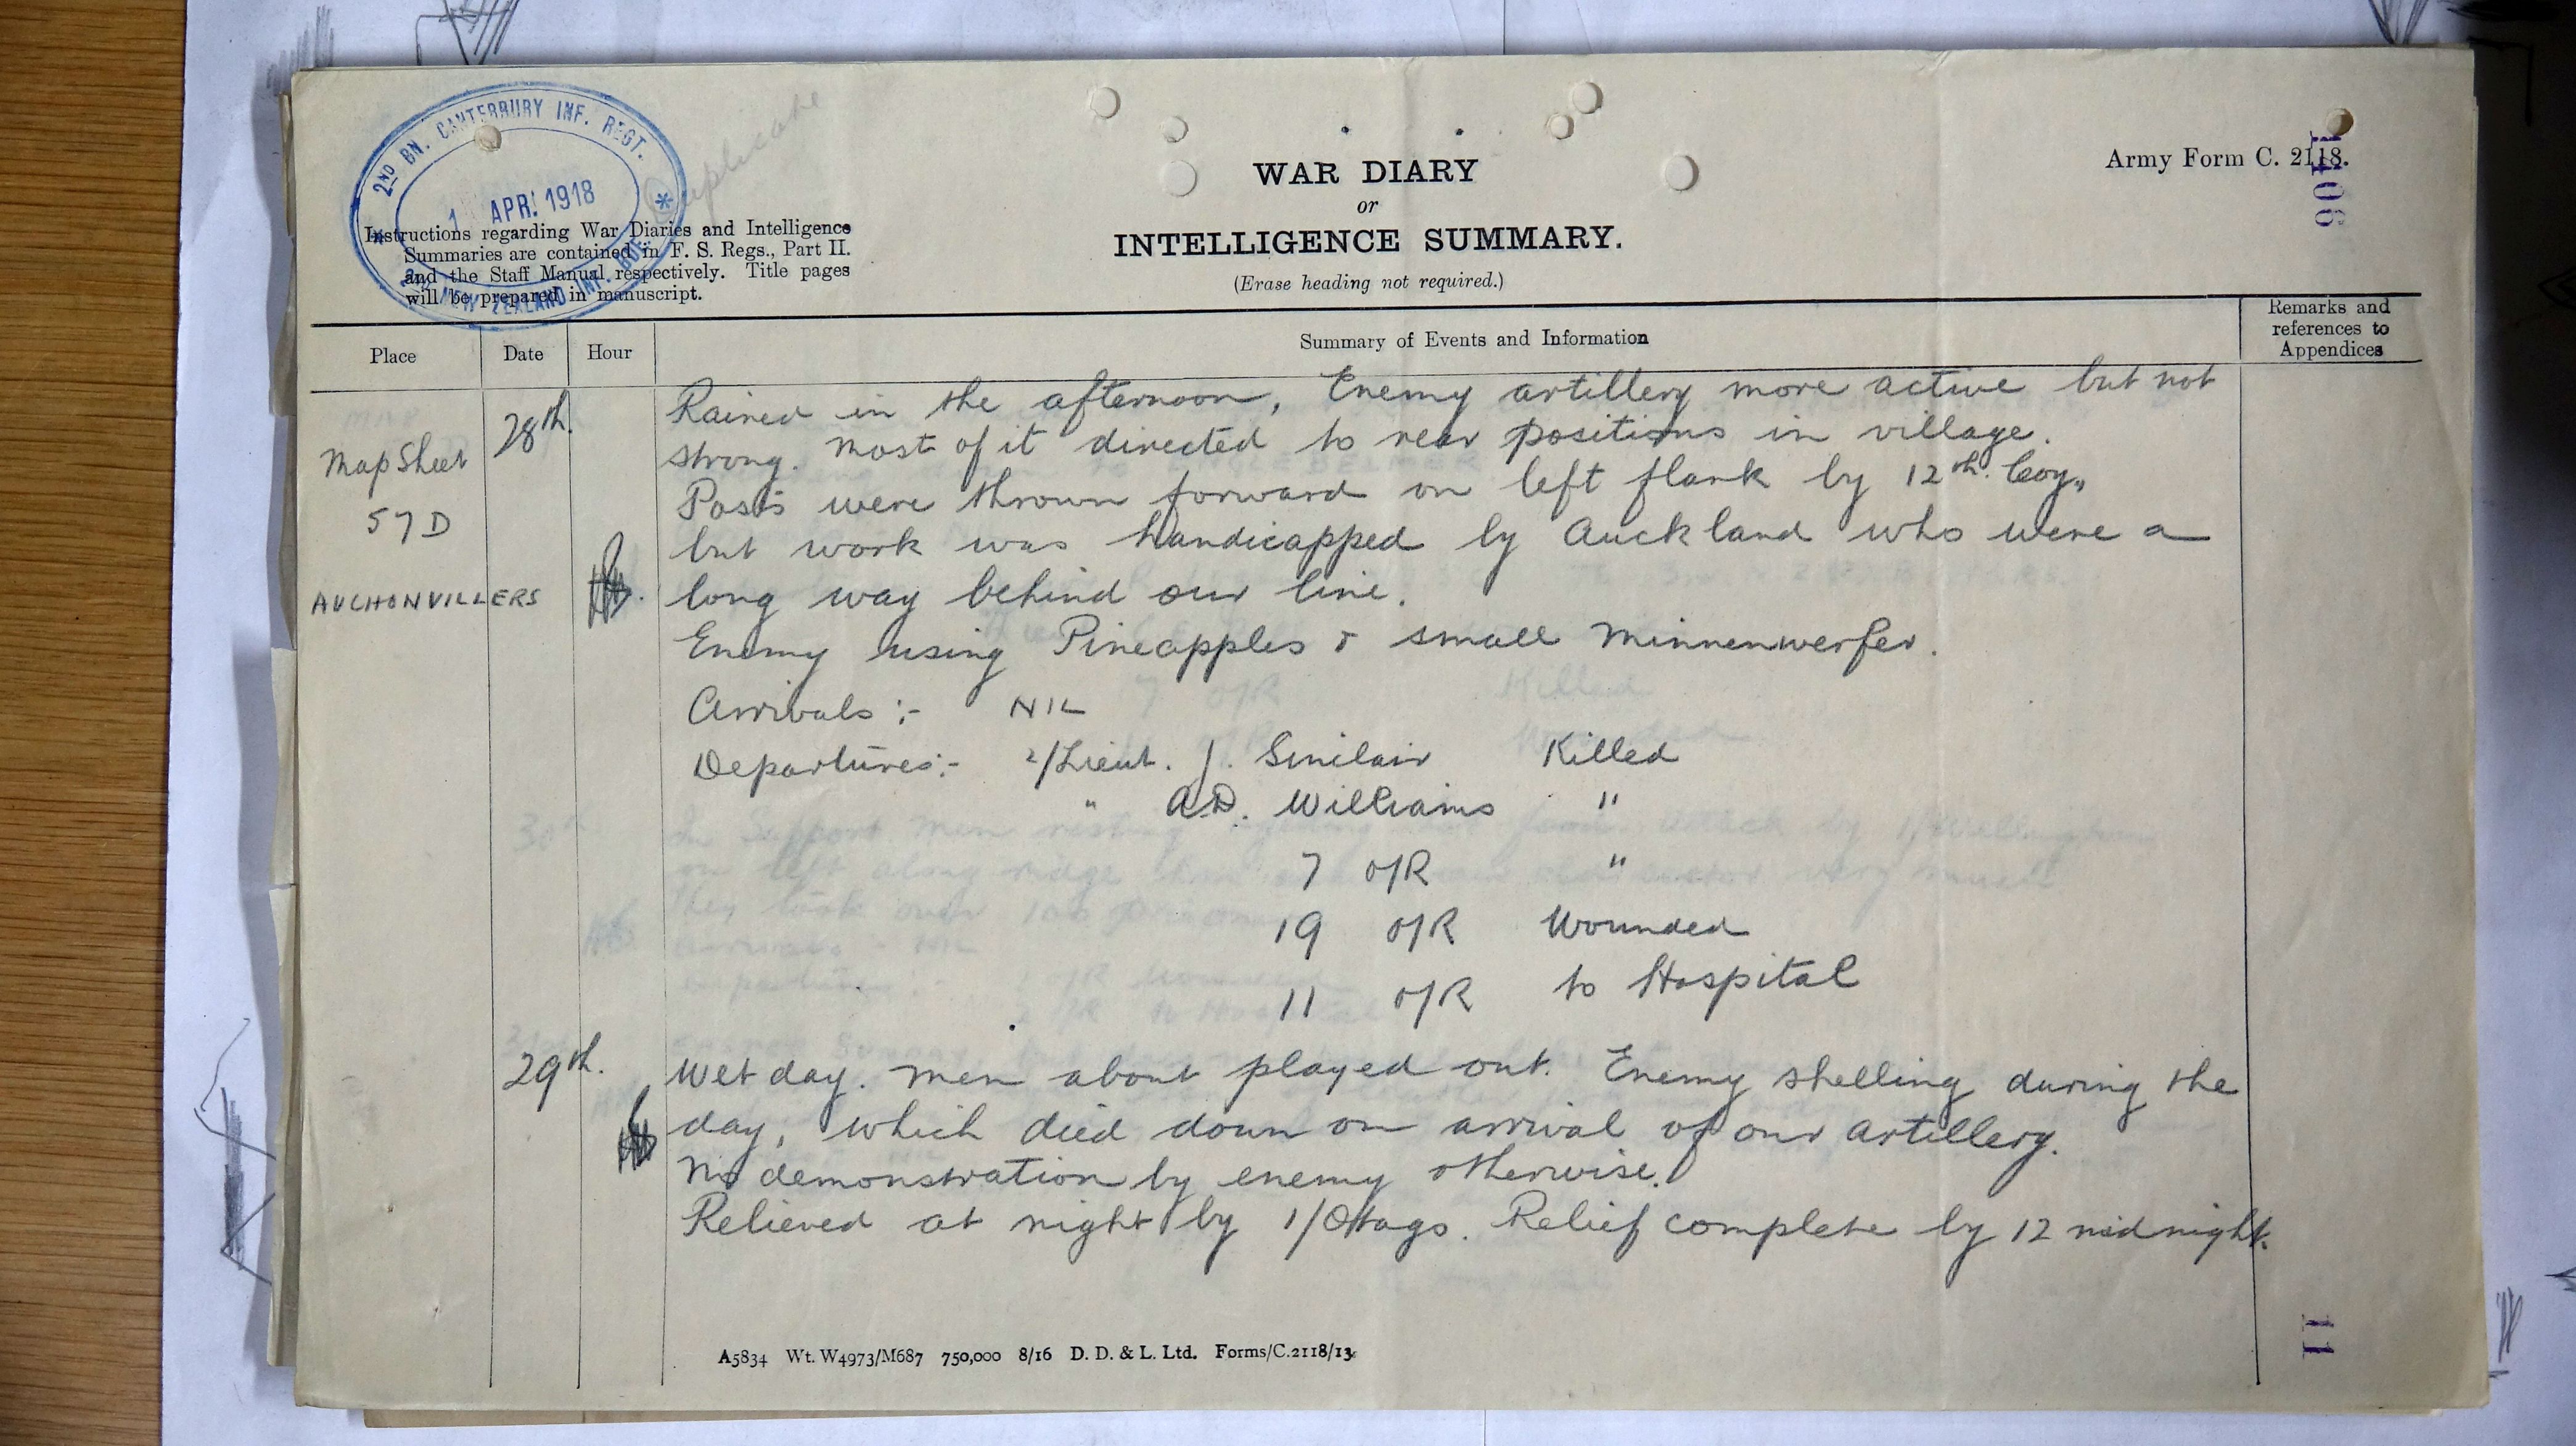 2ND BN. CANTERBURY INF. REGT.
1 APR. 1918
NEW ZEALAND INF. BDE.
Duplicate
Instructions regarding War Diaries and Intelligence
Summaries are contained in F. S. Regs., Part II.
and the Staff Manual respectively. Title pages
will be prepared in manuscript.
WAR DIARY
or
INTELLIGENCE SUMMARY.
(Erase heading not required.)
Army Form C. 2118.
1406
Place
Date
Hour
Summary of Events and Information
Remarks and
references to
Appendices
Map Sheet
57D
AUCHONVILLERS
28th.
Rained in the afternoon, Enemy artillery more active but not
strong. Most of it directed to rear positions in village.
Posts were thrown forward on left flank by 12th. Coy,,
but work was handicapped by Auckland who were a
long way behind our line.
Enemy using Pineapples & small Minnenwerfer.
Arrivals :- NIL
Departures:- 2/Lieut. J. Sinclair Killed
" A.D. Williams "
7 o/R "
19 o/R Wounded
11 o/R to Hospital
29th.
Wet day. Men about played out. Enemy shelling during the
day, which died down on arrival of our artillery.
No demonstration by enemy otherwise.
Relieved at night by 1/Otago. Relief complete by 12 midnight.
A5834 Wt. W4973/M687 750,000 8/16 D. D. & L. Ltd. Forms/C.2118/13.
11